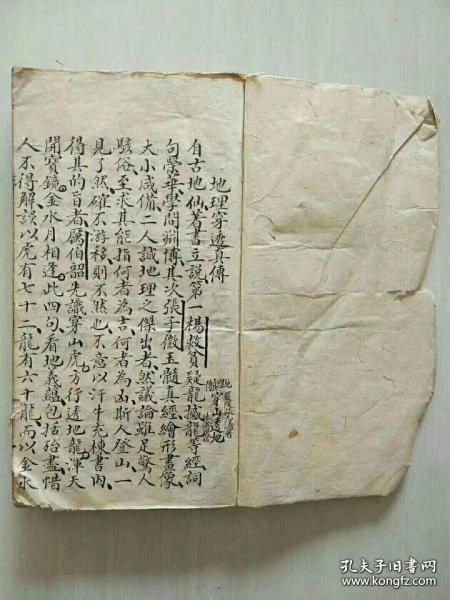 地理穿透真傳
自古地仙著書立說第一楊救貧疑龍撼龍等經詞
句縈華學問淵博其次張子微玉髓真經繪形畫像
大小咸備二人誠地理之傑出者然議論雖足驚人
駭俗至求其能指何者為吉何者為凶斯人登山一
見了然確不游移則不然也不意以汗牛充棟書內
得其的旨者厲伯韶先識穿山虎方行透地龍渾天
開寶鏡金水月相逢此四句看地義蘊包括殆盡惜
人不得解誤以虎有七十二龍有六十龍而以金水
穿山透地
孔夫子旧书网
www.kongfz.com